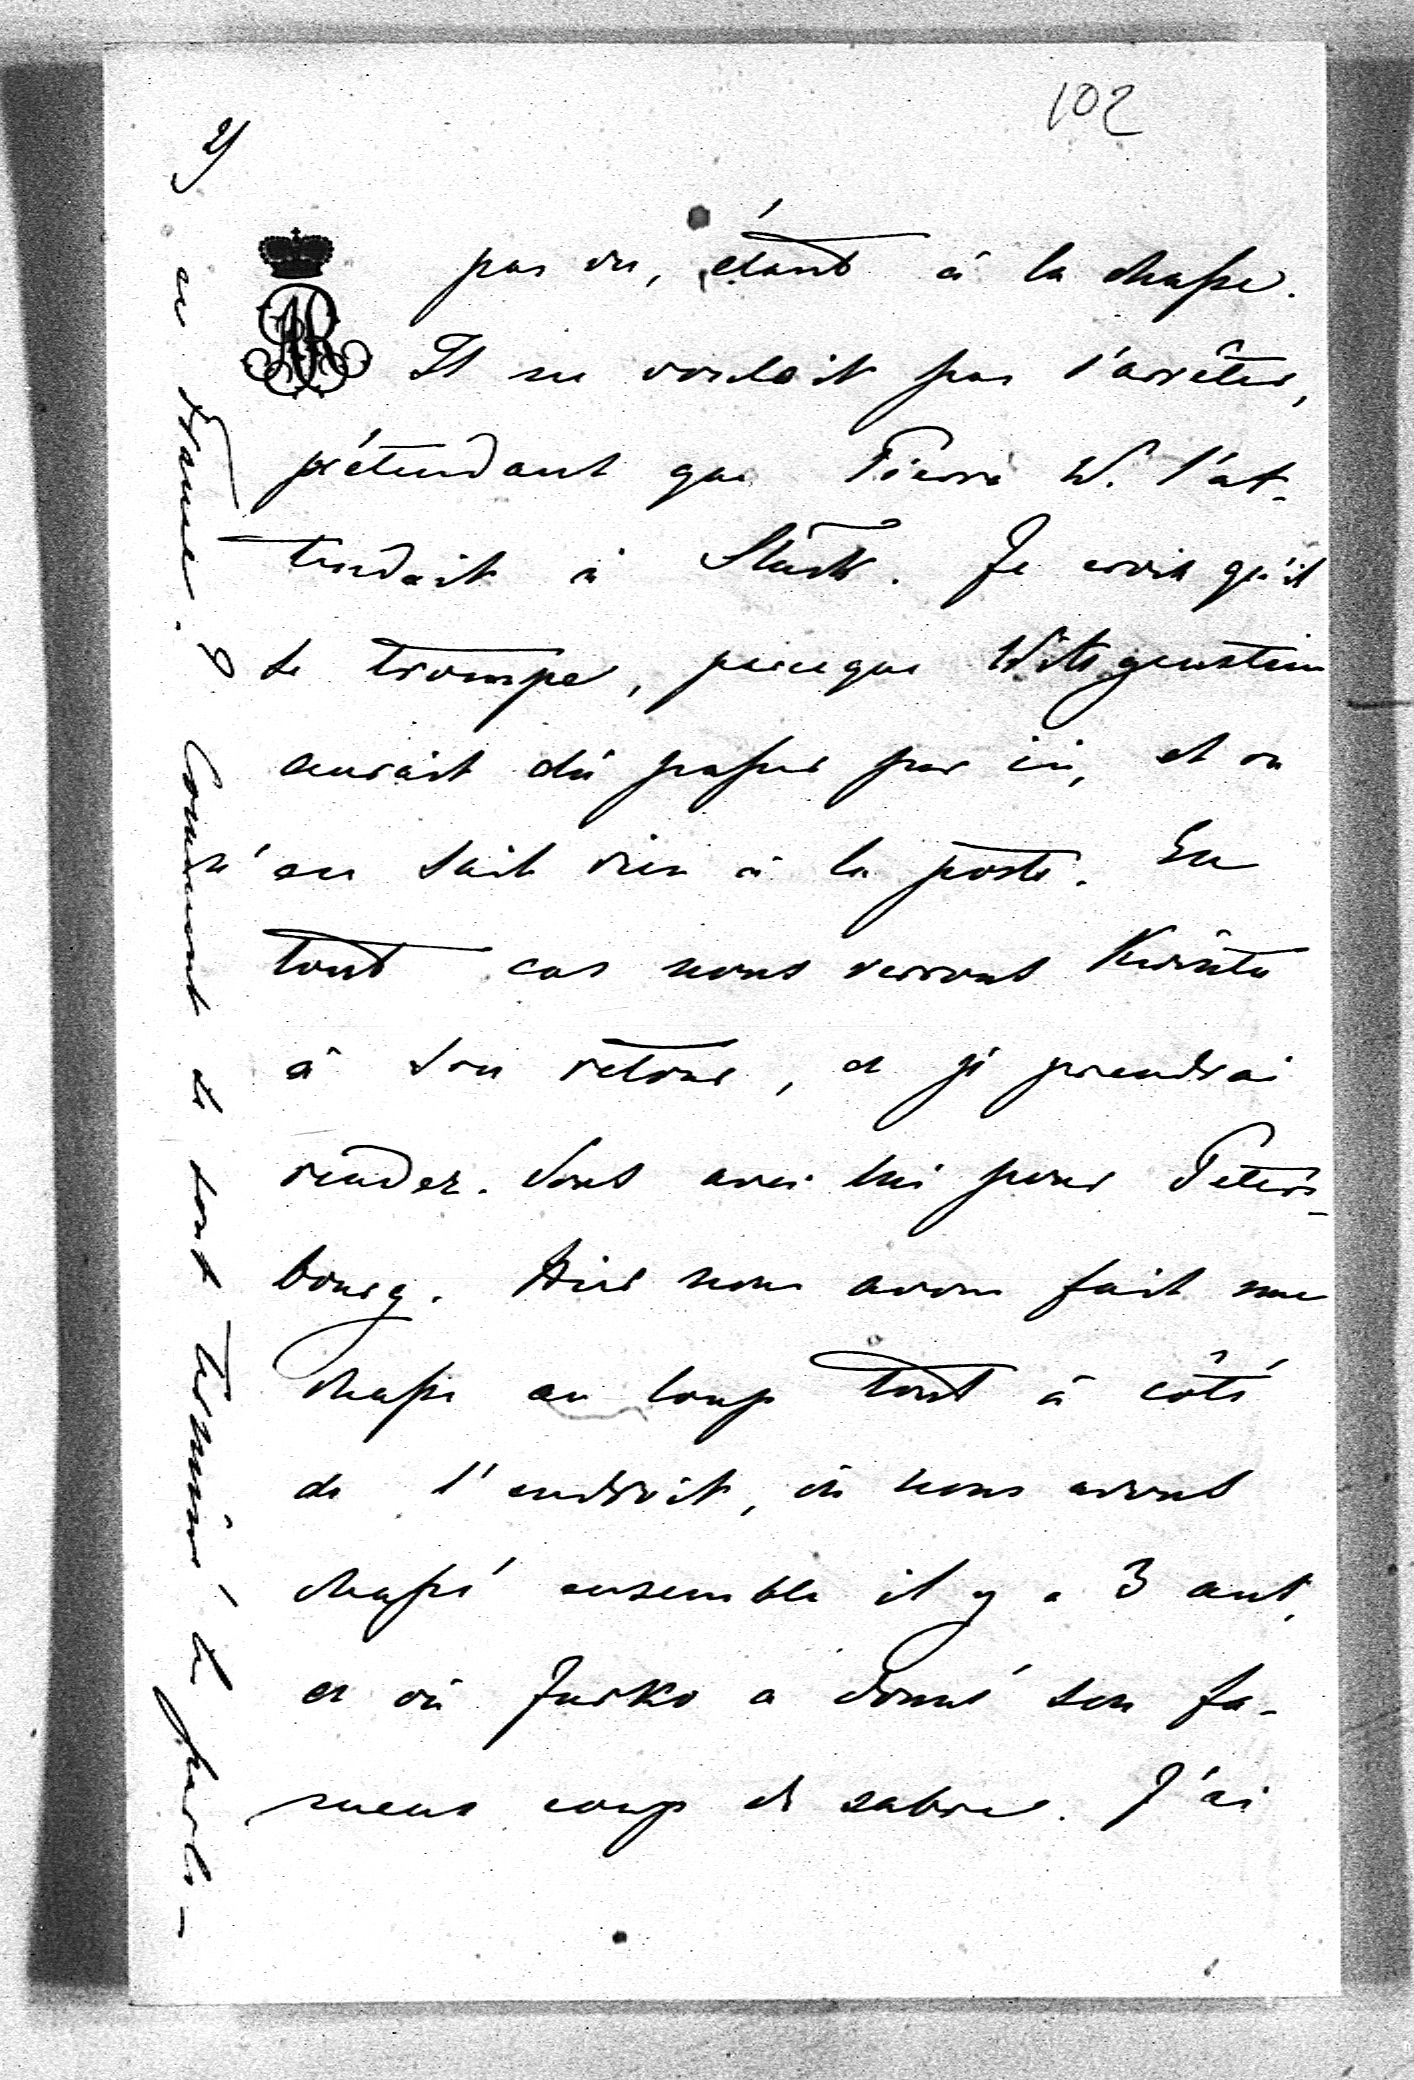 102
2)
pas vu, étant à la chasse.
Il ne voulait pas s'arrêter,
prétendant que Pierre W. l'at-
tendait à Sluck. Je crois qu'il
se trompe, parceque Witgenstein
aurait dû passer par ici, et on
n'en sait rien à la poste. En
tout cas nous verrons
à son retour, et je prendrai
rendez-vous avec lui pour Peters-
bourg. Hier nous avons fait une
chasse au loup tout à côté
de l'endroit, où nous avons
chassé ensemble il y a 3 ans,
et où Jurko a donné son fa-
meux coup de sabre. J'ai
Comment se sont terminé les parlo-